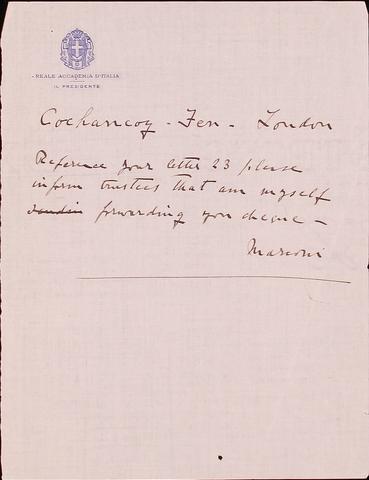 REALE ACCADEMIA D'ITALIA
IL PRESIDENTE
Cochancoy - Fen - London
Reference your letter 23 please
inform trustees that am myself
forwarding you cheque -
Marconi